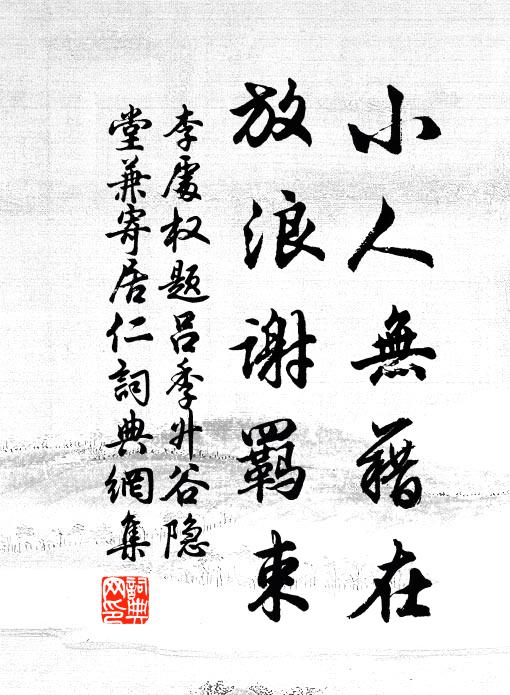 小人無籍在
放浪謝羈束
李處权题吕季升谷隐
堂兼寄居仁詞典網集
詞典
网印